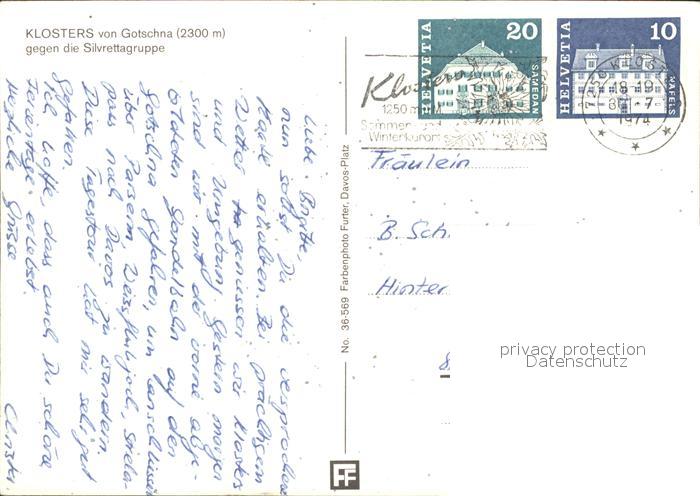 KLOSTERS von Gotschna (2300 m)
gegen die Silvrettagruppe
Liebe Brigitte,
nun sollst Du die versprochene
Karte erhalten. Bei prächtigem
Wetter geniessen wir Klosters
und Umgebung. Gestern morgen
sind wir mit der
Gondelbahn auf den
Gotschna gefahren, um anschliessend
über Parsenn, Weissfluhjoch,
pass nach Davos zu wandern.
Diese Tagestour hat mir sehr gut
gefallen.
Ich hoffe, dass auch Du schöne
Ferientage erlebst.
Herzliche Grüsse
No. 36-569 Farbenphoto Furter, Davos-Platz
FF
HELVETIA 20 SAMEDAN
HELVETIA 10 NÄFELS
Klosters
1250 m
Sommer-
Winterkurort
7250 KLOSTERS
1974
Fräulein
B. Sch
Hinter
8
privacy protection
Datenschutz